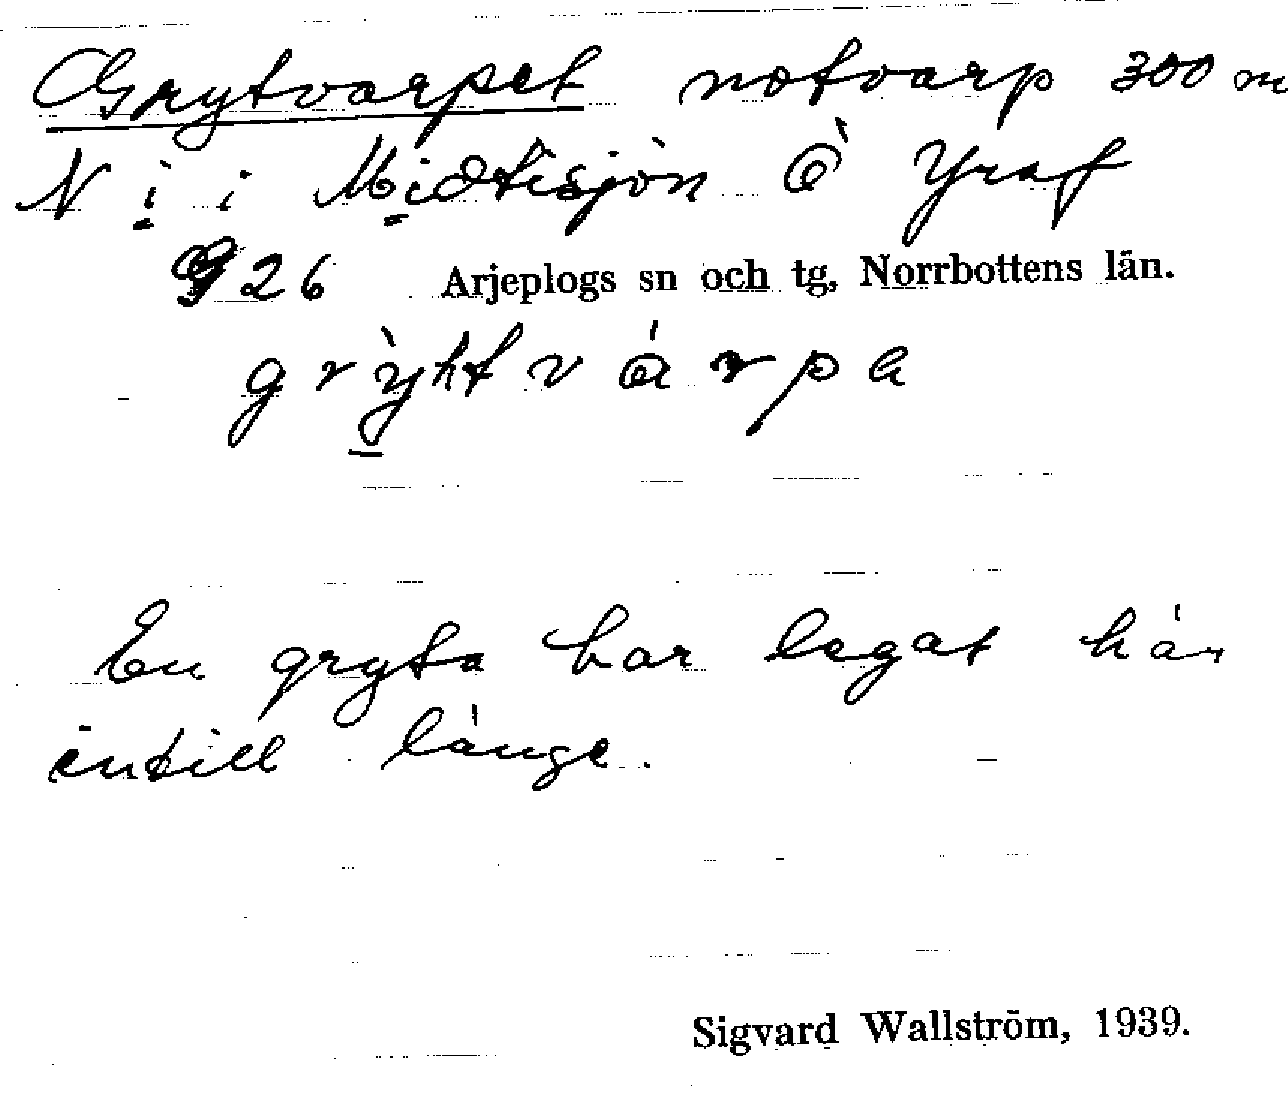 Grytvarpet notvarp 300 m
N i i Midtisjön Ö Yraf
926 Arjeplogs sn och tg, Norrbottens län.
grỳhtvárpa
En gryta har legat här
intill länge.
Sigvard Wallström, 1939.